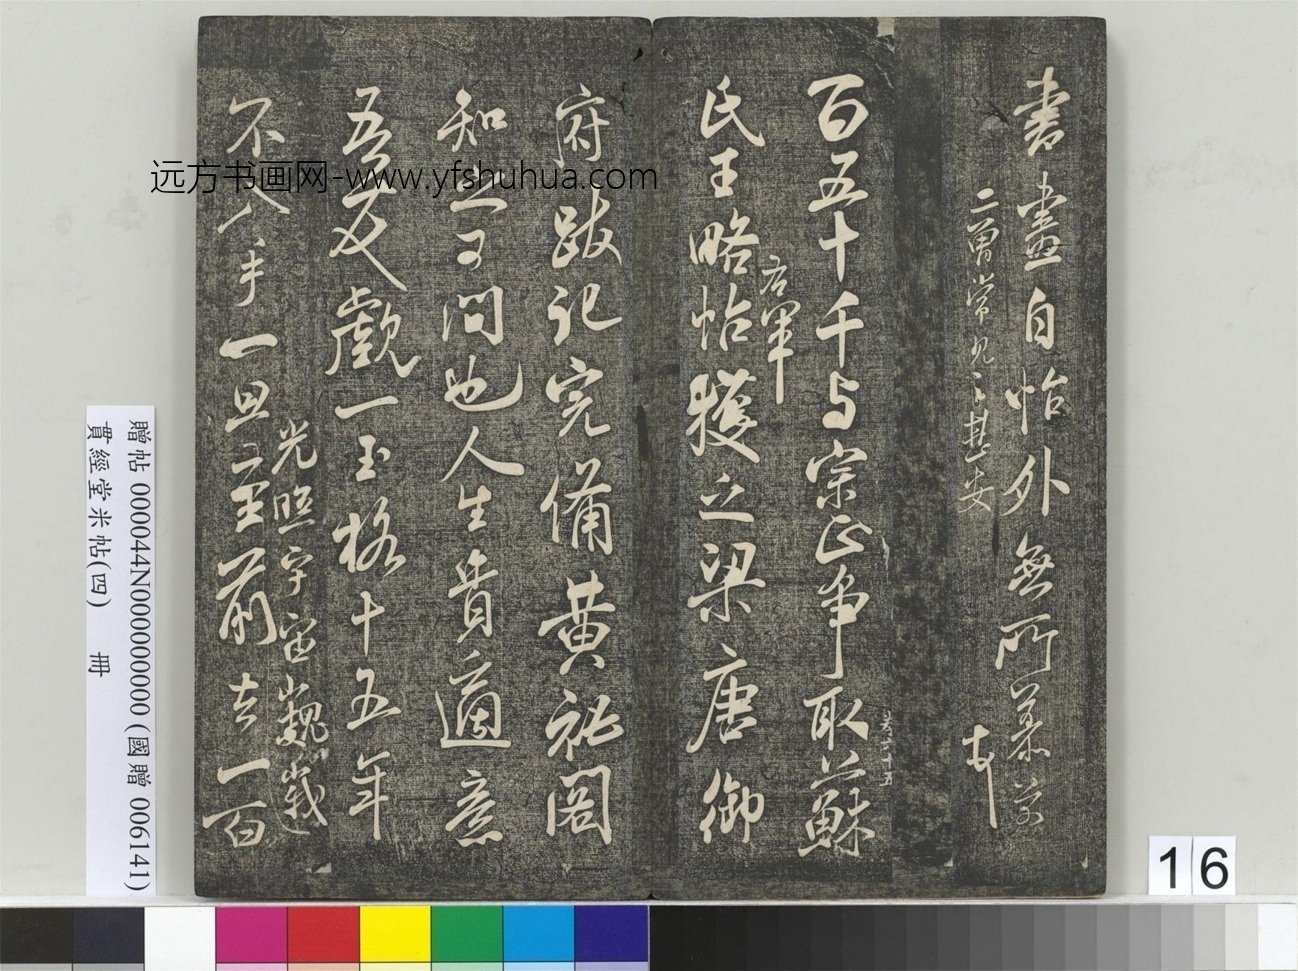 書畫自怡外無所慕
二曾常見之甚安
芾
百五十千与宗正争取蘇
右軍
氏王略帖獲之梁唐御
府跋記完備黄祕閣
知之可問也人生貴適意
吾友覷一玉格十五年
光照宇宙巍峩
不入手一旦至前去一百
远方书画网-www.yfshuhua.com
贈帖 000044N000000000 (國贈 006141)
貫經堂米帖(四) 冊
16